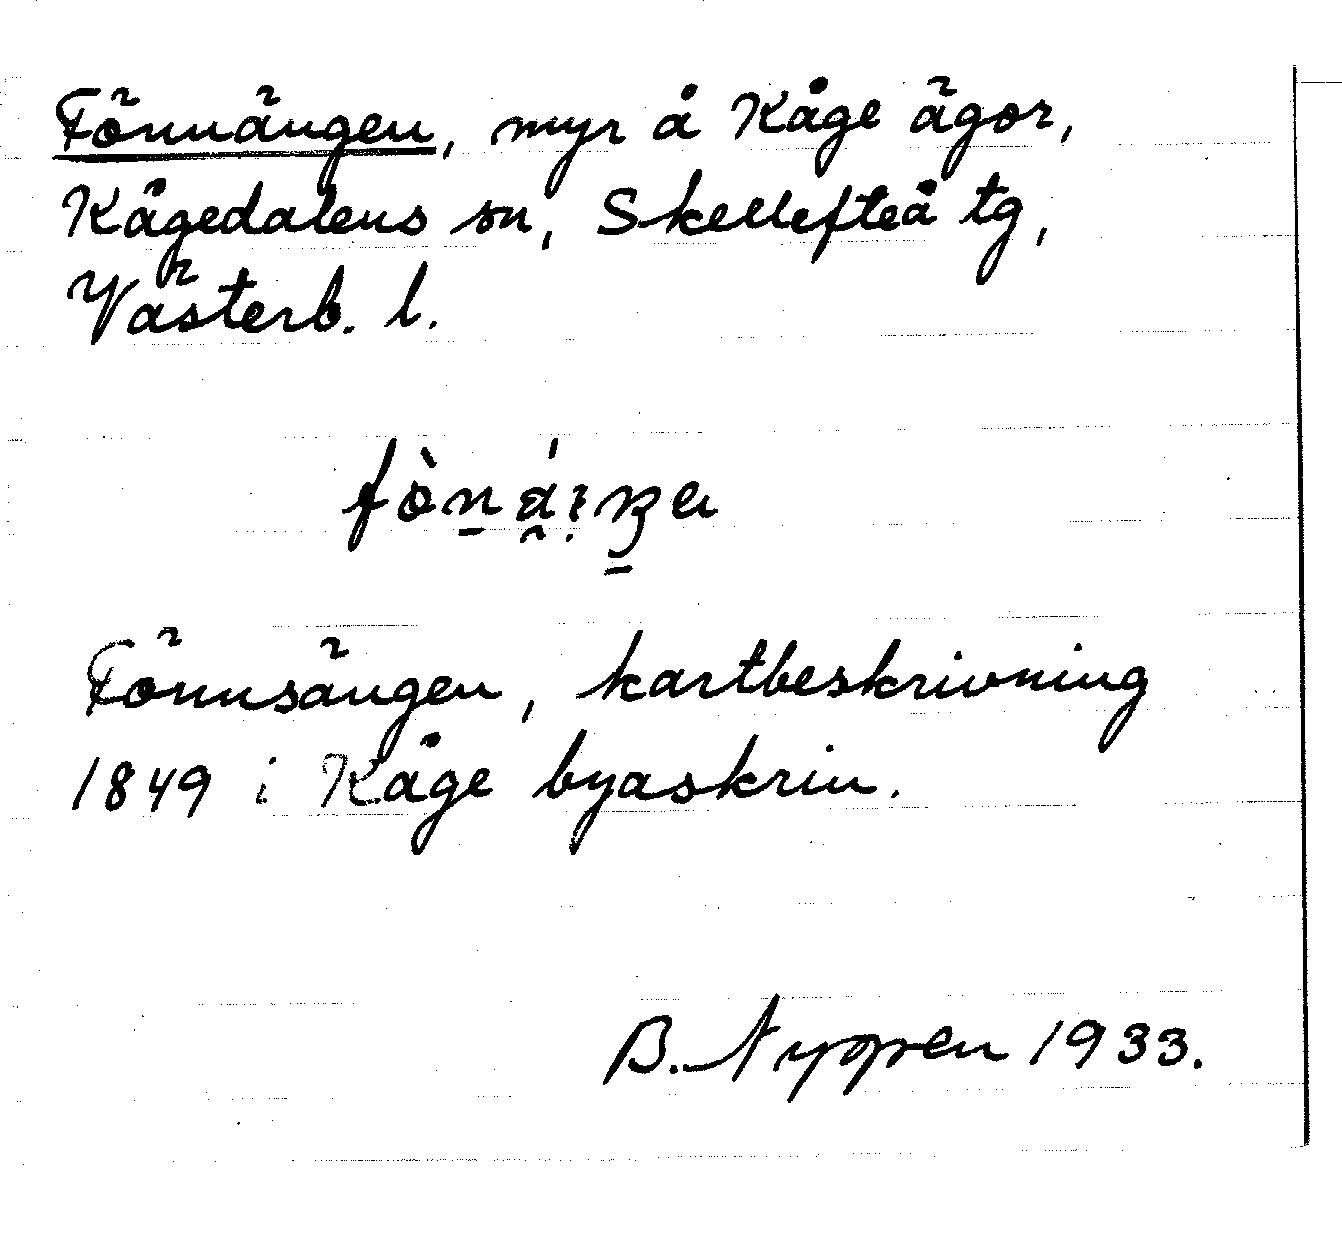 Fönnängen, myr å Kåge ägor,
Kågedalens sn, Skellefteå tg,
Västerb. l.
Fönnsängen, kartbeskrivning
1849 i Kåge byaskrin.
B. Nygren 1933.